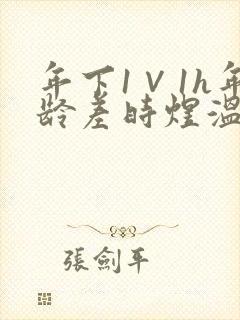 年下1V1h年
龄差时煜温
張劍平